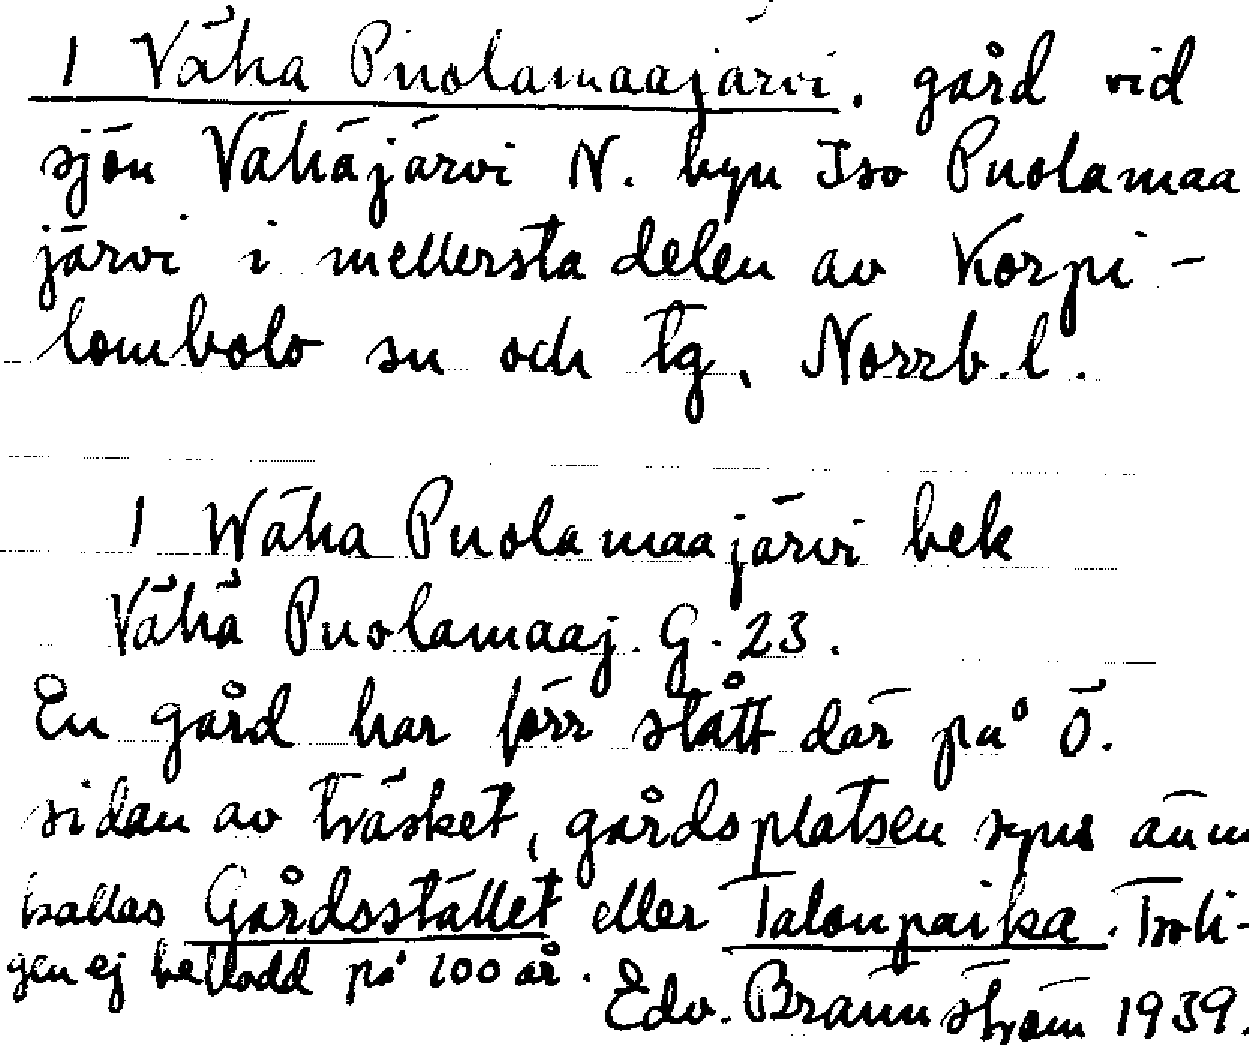 1 Väha Puolamaajärvi. gård vid
sjön Vähäjärvi N. byn Iso Puolamaa
järvi i mellersta delen av Korpi-
lombolo sn och tg, Norrb. l.
1 Wäha Puolamaajärvi bek
Vähä Puolamaaj. G. 23.
En gård har förr stått där på Ö.
sidan av träsket, gårdsplatsen syns ännu
kallas Gårdsstället eller Talonpaika. Troli-
gen ej bebodd på 100 år.
Edv. Brännström 1939.